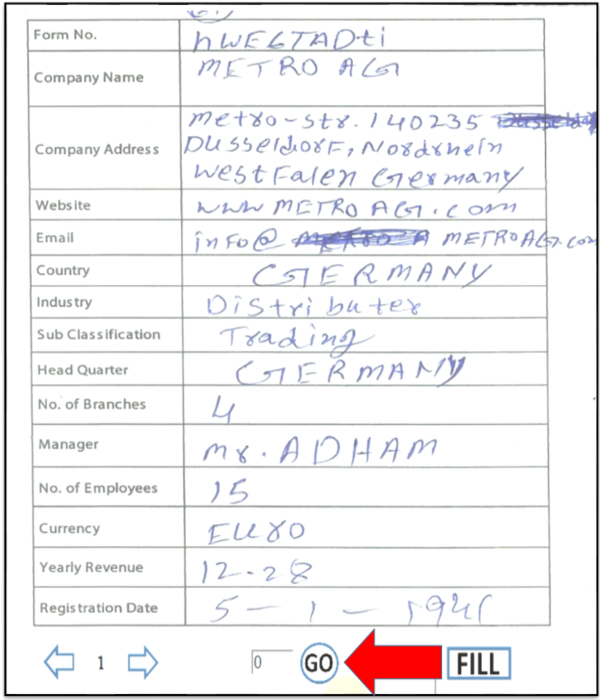 Form No. hWEGTADti
Company Name METRO AG
Company Address metro-str. 140235
Dusseldorf, Nordrhein
Westfalen Germany
Website www METRO AG.com
Email info@ METROAG.com
Country GERMANY
Industry Distributer
Sub Classification Trading
Head Quarter GERMANY
No. of Branches 4
Manager Mr. ADHAM
No. of Employees 15
Currency Euro
Yearly Revenue 12-28
Registration Date 5 - 1 -
1 0 GO FILL